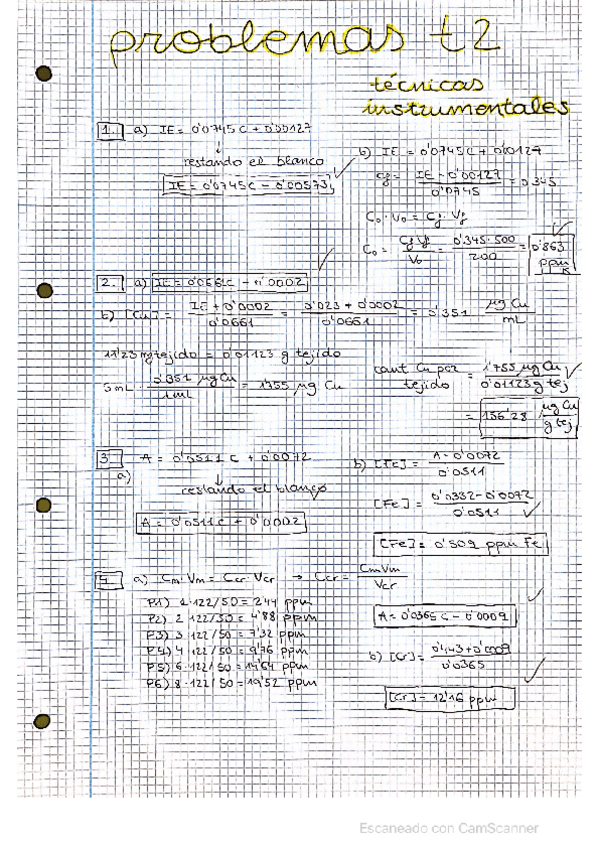 problemas t2
técnicas
instrumentales
1. a) IE = 0'0745C + 0'00127
↓
restando el blanco
IE = 0'0745C - 0'00573
b) IE = 0'0745C + 0'00127
Cf = IE - 0'00127 / 0'0745 = 0'345
C₀ · V₀ = Cf · Vf
C₀ = Cf Vf / V₀ = 0'345 · 500 / 200 = 0'863 ppm
2. a) IE = 0'0661C - 0'0002
b) [Cu] = IE + 0'0002 / 0'0661 = 0'023 + 0'0002 / 0'0661 = 0'351 µg Cu / mL
11'23 mg tejido = 0'01123 g tejido
5 mL · 0'351 µg Cu / 1 mL = 1'755 µg Cu
cant Cu por tejido = 1'755 µg Cu / 0'01123 g tej
= 156'28 µg Cu / g tej
3. A = 0'0511C + 0'0072
a)
↓
restando el blanco
A = 0'0511C + 0'0002
b) [Fe] = A - 0'0072 / 0'0511
[Fe] = 0'0332 - 0'0072 / 0'0511
[Fe] = 0'509 ppm Fe
4. a) Cm · Vm = Ccr · Vcr → Ccr = Cm Vm / Vcr
P1) 1 · 122/50 = 2'44 ppm
P2) 2 · 122/50 = 4'88 ppm
P3) 3 · 122/50 = 7'32 ppm
P4) 4 · 122/50 = 9'76 ppm
P5) 6 · 122/50 = 14'64 ppm
P6) 8 · 122/50 = 19'52 ppm
A = 0'0365C - 0'0009
b) [Cr] = 0'443 + 0'0009 / 0'0365
[Cr] = 12'16 ppm
Escaneado con CamScanner